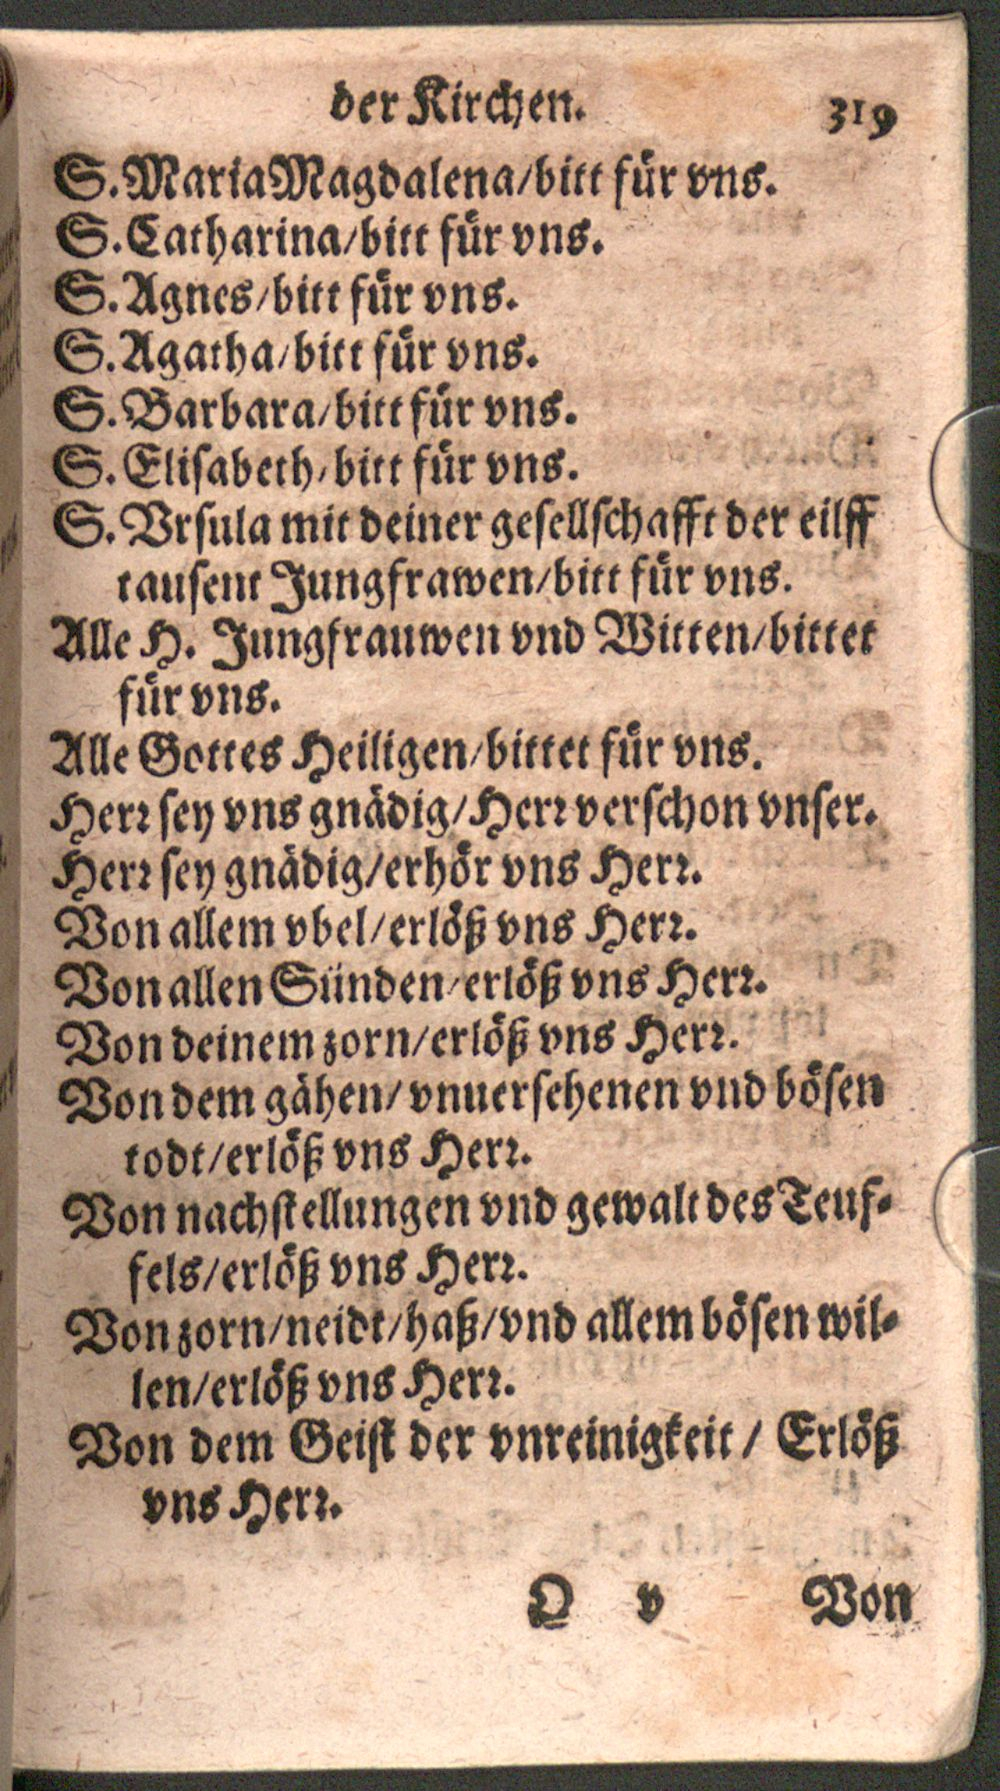 der Kirchen. 319
S. Maria Magdalena/bitt für vns.
S. Catharina/bitt für vns.
S. Agnes/bitt für vns.
S. Agatha/bitt für vns.
S. Barbara/bitt für vns.
S. Elisabeth/bitt für vns.
S. Vrsula mit deiner gesellschafft der eilff
tausent Jungfrawen/bitt für vns.
Alle H. Jungfrauwen vnd Witten/bittet
für vns.
Alle Gottes Heiligen/bittet für vns.
Herr sey vns gnädig/Herr verschon vnser.
Herr sey gnädig/erhör vns Herr.
Von allem vbel/erlöß vns Herr.
Von allen Sünden/erlöß vns Herr.
Von deinem zorn/erlöß vns Herr.
Von dem gähen/vnuersehenen vnd bösen
todt/erlöß vns Herr.
Von nachstellungen vnd gewalt des Teuf-
fels/erlöß vns Herr.
Von zorn/neidt/haß/vnd allem bösen wil-
len/erlöß vns Herr.
Von dem Geist der vnreinigkeit / Erlöß
vns Herr.
O v Von